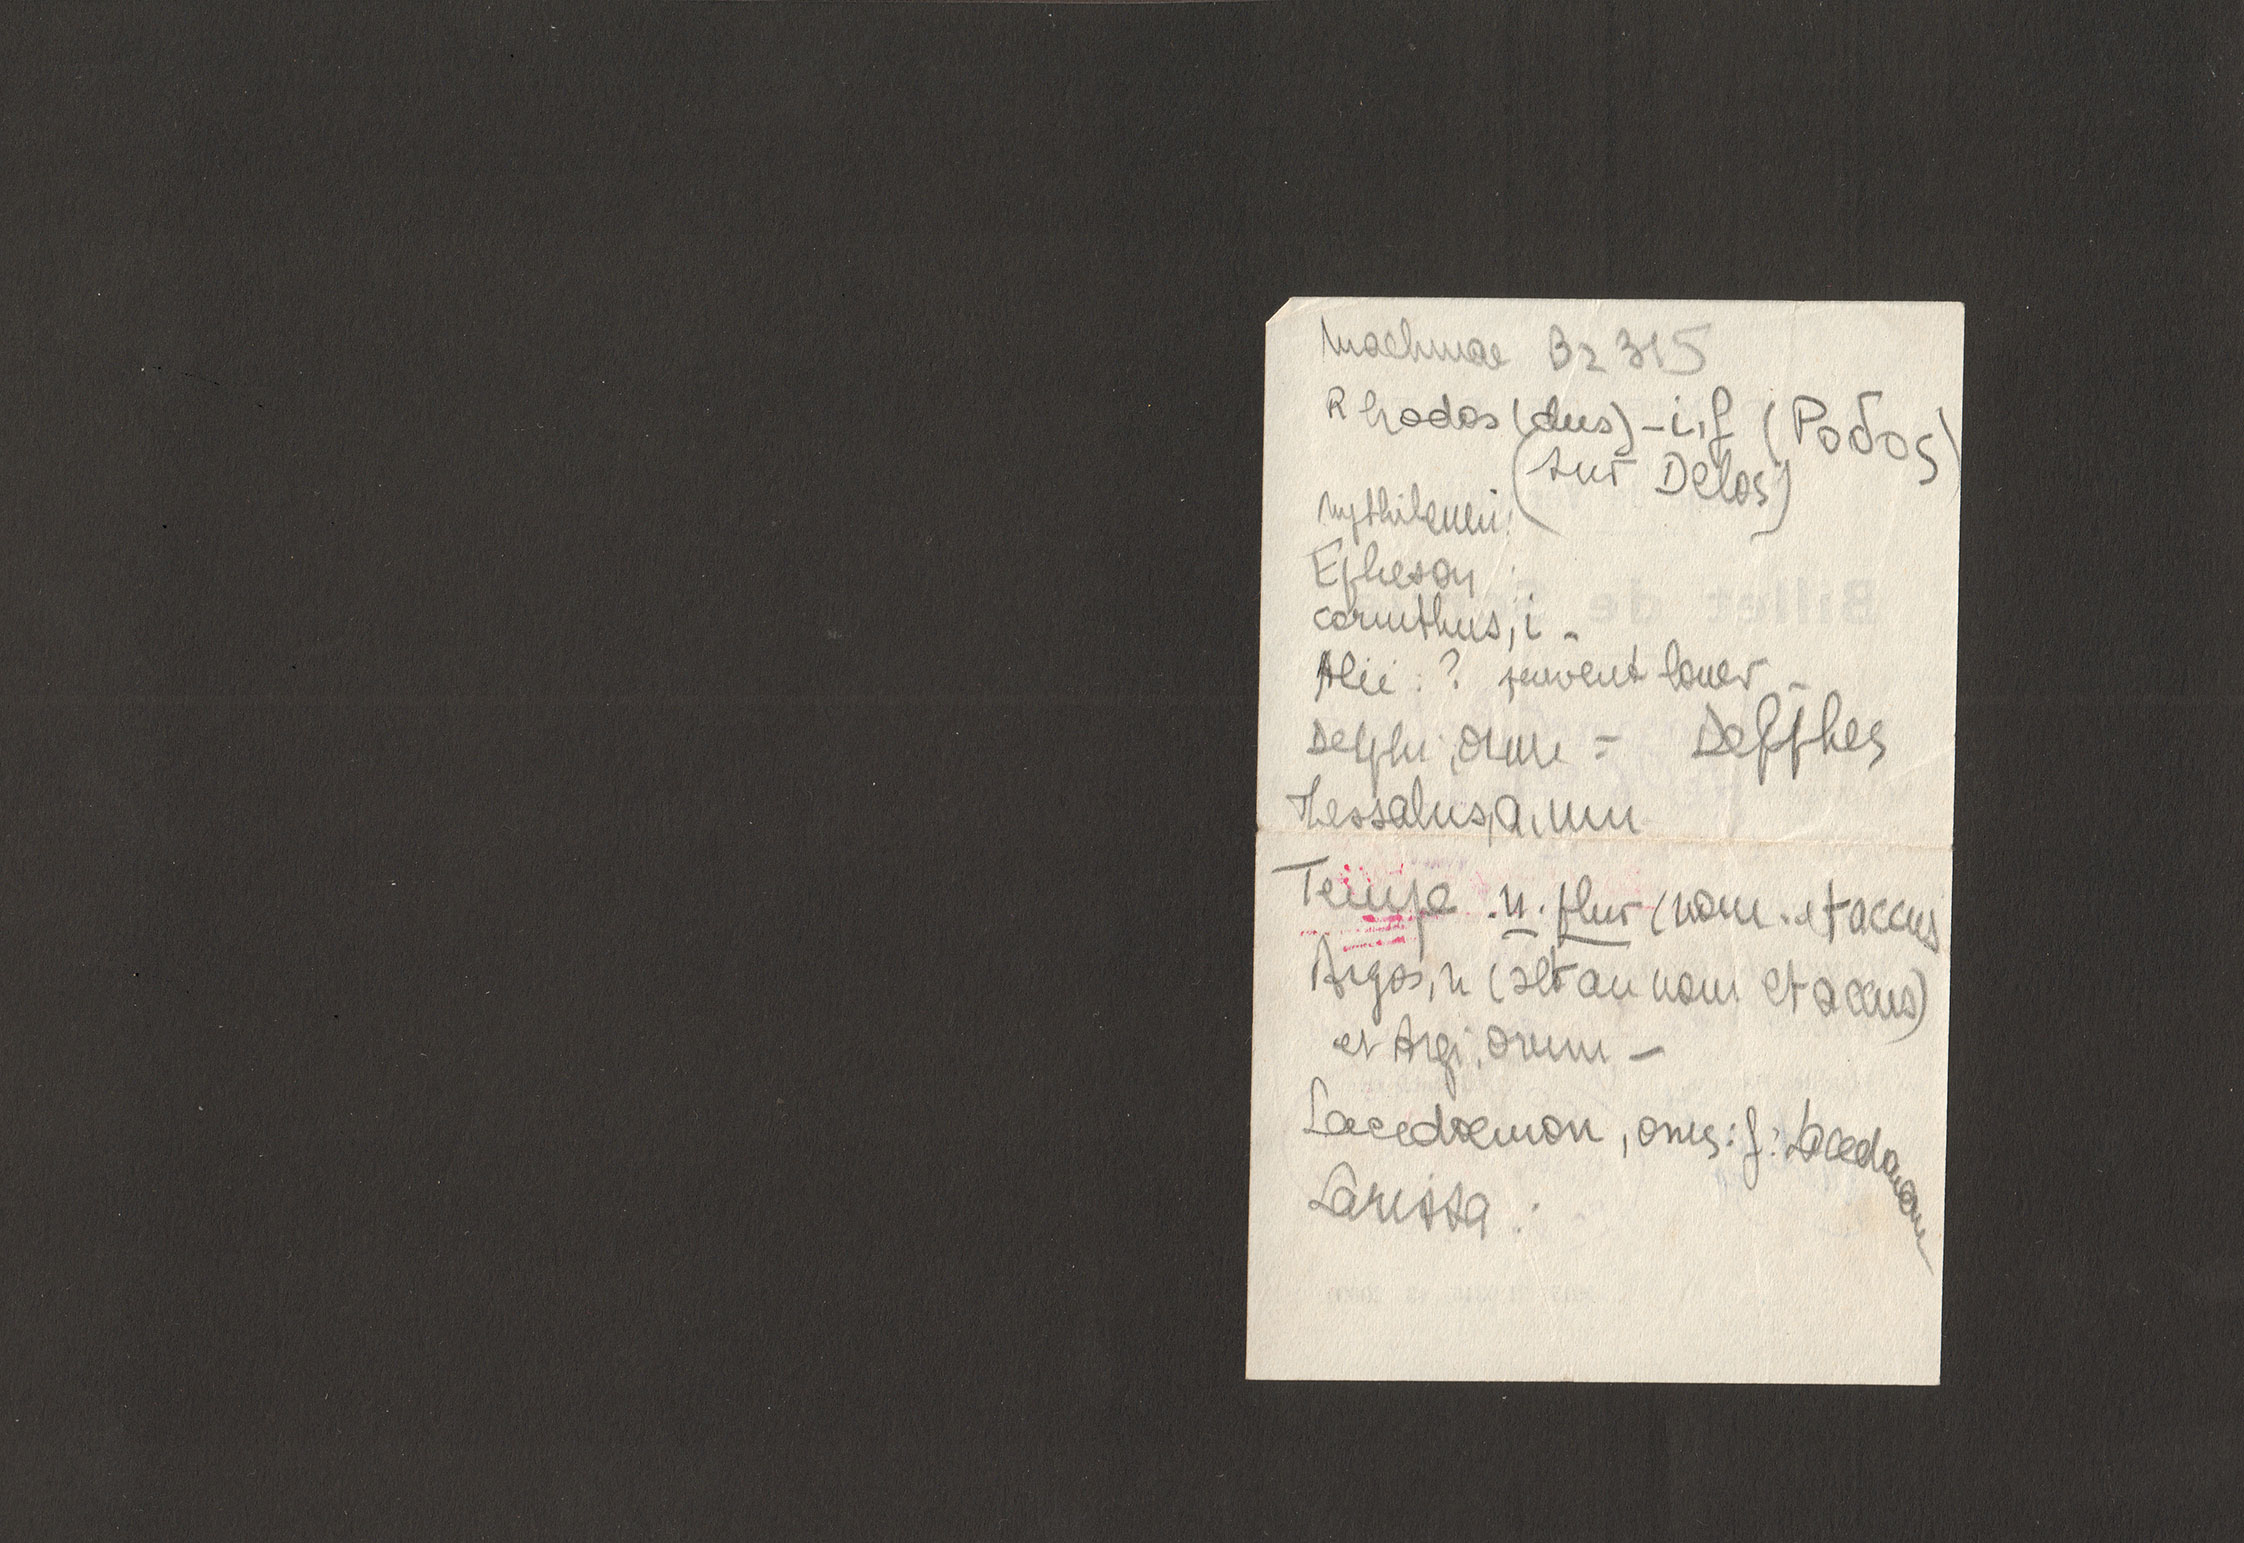 Rhodos (dus) - i, f (Ροδος)
(sur Delos)
Epheson
corinthus, i -
Alii : ? peuvent louer -
Delphi, orum = Delphes
Thessalus, a, um
Tempe . n . plur (nom . et accus
Argos, n (slt au nom et accus)
et Argi, orum -
Lacedaemon, onis : f :
Larissa :
Billet de